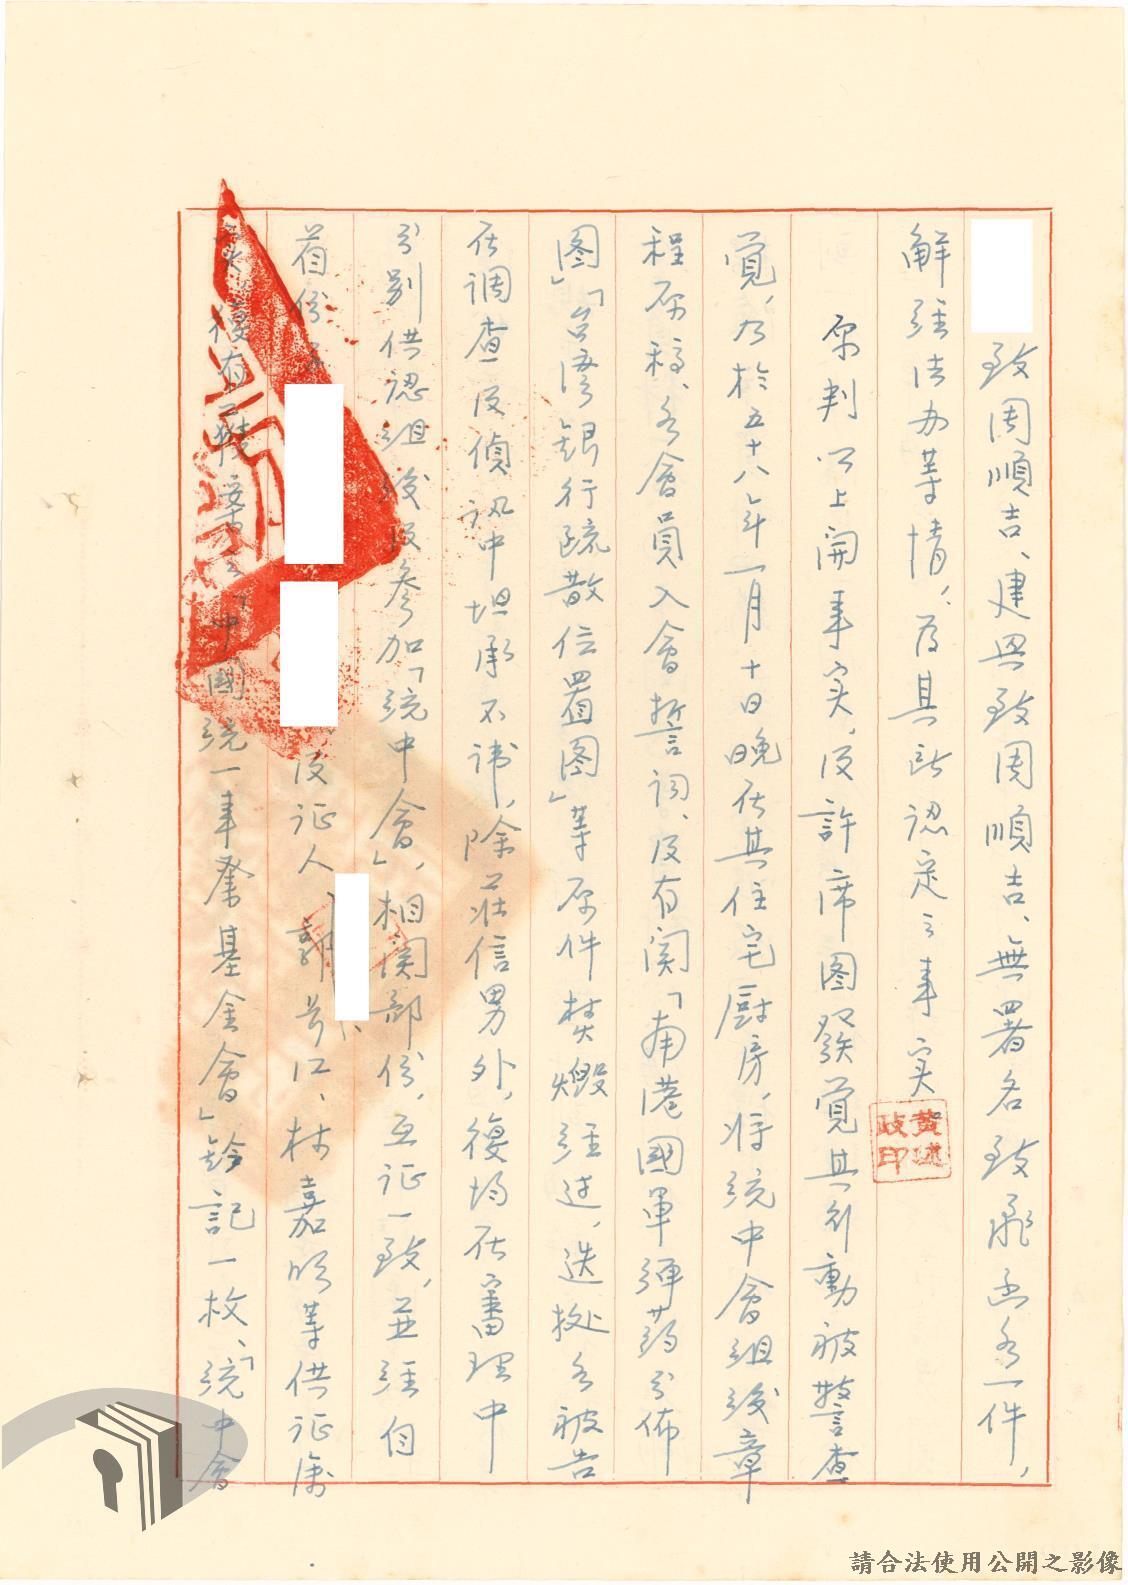 致周順吉、建興致周順吉、無署名致飛函各一件，
解送法办等情，为其所認定之事实
黃述政印
原判以上開事实，及許席图發覚其行動被警查
覚，乃於五十八年一月十日晚在其住宅厨房，将统中會组织章
程原稿、各會員入會誓词、及有関「南港國軍弹药分佈
图」「台湾银行疏散位置图」等原件焚燬经过，迭据各被告
在调查及偵訊中坦承不讳，除莊信男外，復均在審理中
分别供認组织及参加「统中會」相関部份，互证一致，並经自
首份子
及证人
林嘉明等供证属
实，復有
「中國统一事業基金會」鈐記一枚、「统中會
請合法使用公開之影像